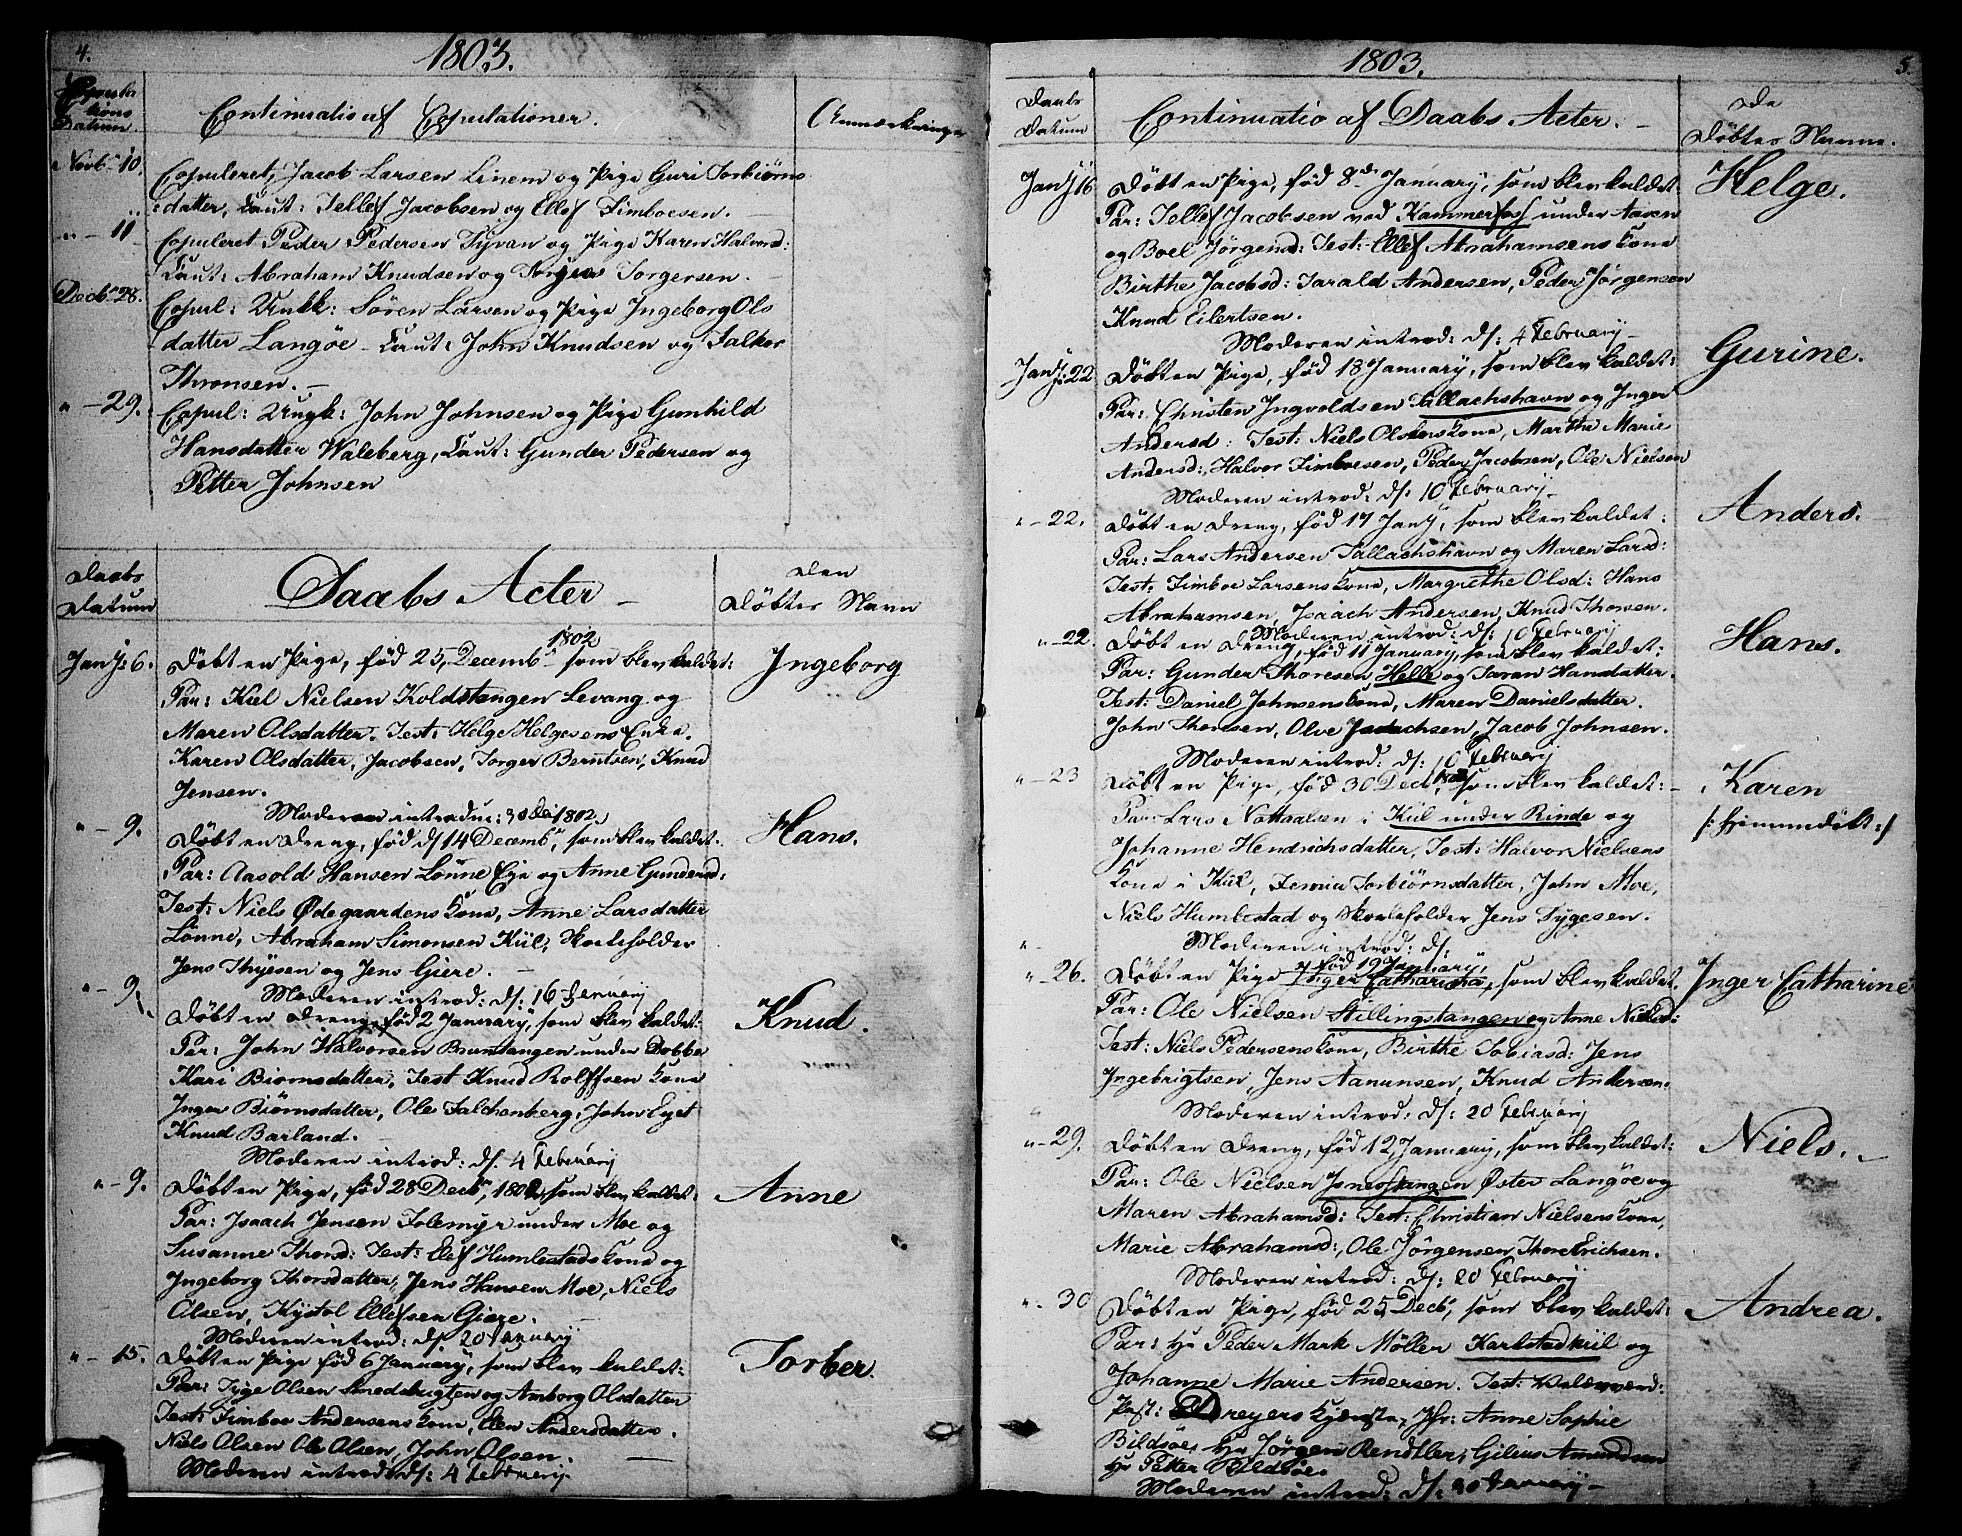 4.
1803.
Copula
tions
Datum
Continuatio af Copulationer.
Anmærkninge
Novbr 10.
Copuleret, Jacob Larsen Linem og Pige Guri Torbiørns
datter, Caut: Tellef Jacobsen og Ellef Simboesen.
" - 11
Copuleret Peder Pedersen Tyvan og Pige Karen Halvord:
Caut: Abraham Knudsen og Torger Torgersen.
Decbr 28.
Copul: Unkk: Søren Larsen og Pige Ingeborg Ols
datter Langøe - Caut: John Knudsen og Falkor
Thronsen.
" - 29.
Copul: Ungk: John Johnsen og Pige Gunhild
Hansdatter Waleberg, Caut: Gunder Pedersen og
Petter Johnsen
Daabs
Datum
Daabs Acter
Den
Døbtes Navn
Jany: 6.
Døbt en Pige, fød 25 Decembr 1802 som blev kaldet:
Ingeborg
Par: Kiel Nielsen Koldstangen Levang og
Maren Olsdatter. Test: Helge Helgesens Enke.
Karen Olsdatter, Jacobsen, Torger Berntsen, Knud
Jensen.
Moderen introdu: 30
" - 9.
Døbt en Dreng, fød d: 14 Decembr 1802, som blev kaldet:
Hans.
Par: Aasold Hansen Lønne Eie og Anne Gundersd:
Test: Niels Ødegaardens Kone, Anne Larsdatter
Lønne, Abraham Simonsen Kiil, Skoleholder
Jens Thyesen og Jens Giere.
Moderen introd: d: 16 Januarij
" - 9.
Døbt en Dreng, fød 2 January, som blev kaldet:
Knud.
Par: John Halvorsen Bruntangen under Dobbe
Kari Biørnsdatter, Test Knud Rolffsen Kone
Inger Biørnsdatter, Ole Falchenberg, John Eget
Knud Barland.
Moderen introd: d: 4 Februarij
" - 9.
Døbt en Pige, fød 28 Decbr 1802, som blev kaldet:
Anne
Par: Isaach Jensen Folemyr under Moe og
Susanne Thorsd: Test: Elef Humlestads Kone og
Ingeborg Thorsdatter, Jens Hansen Moe, Niels
Olsen, Kystol Ellefsen Giere.
Moderen introd: d: 20 Januarij
" - 15.
Døbt en Pige fød 6 January, som blev kaldet:
Torber.
Par: Tyge Olsen Smedsbugten og Amborg Olsdatter
Test: Simboe Andersens Kone, Elen Andersdatter.
Niels Olsen Ole Olsen, John Olsen.
Moderen introd: d: 4 Februarij.
5.
1803.
Daabs
Datum
Continuatio af Daabs Acter.
De
Døbtes Navne.
Jany 16
Døbt en Pige, fød 8de January, som blev kaldet
Helge.
Par: Tellef Jacobsen ved Kammerfos under Aaen
og Boel Jørgensd: Test: Ellef Abrahamsens Kone
Birthe Jacobsd: Tarald Andersen, Peder Jørgensen
Knud Eilertsen.
Moderen introd: d: 4 Februarij
Jany: 22
Døbt en Pige, fød 18 January, som blev kaldet:
Gurine.
Par: Christen Ingvoldsen Tallachshavn og Inger
Andersd: Test: Niels Olsens Kone, Marthe Marie
Andersd:, Halvor Simboesen, Peder Jacobsen, Ole Nielsen
Moderen introd: d: 10 Februarij
" - 22.
Døbt en Dreng, fød 17 Jany, som blev kaldet:
Anders.
Par: Lars Andersen Tallachshavn og Maren Larsd:
Test: Simboe Larsens Kone, Margrethe Olsd: Hans
Abrahamsen, Isaach Andersen, Knud Thorsen.
Moderen introd: d: 10 Februarij
" - 22.
Døbt en Dreng, fød 11 January, som blev kaldet:
Hans.
Par: Gunder Thoresen Helle og Saran Hansdatter.
Test: Daniel Johnsens Kone, Maren Danielsdatter.
John Thoresen, Olve Isachsen, Jacob Johnsen.
Moderen introd: d: 10 Februarij
" - 23
Døbt en Pige, fød 30 Decbr 1802, som blev kaldet:
Karen
/: Hjemmedøbt :/
Par: Lars Nottaalsen i Kiil under Rinde og
Johanne Hendrichsdatter, Test: Halvor Nielsens
Kone i Kiil, Torbiørnsdatter, John Moe,
Niels Humlestad og Skoleholder Jens Tygesen.
Moderen introd: d:
" - 26.
Døbt en Pige fød 19 January, Inger Catharina, som blev kaldet.
Inger Catharine
Par: Ole Nielsen Stillingstangen og Anne Nielsd:
Test: Niels Pedersens Kone, Birthe Tobiasd: Jens
Ingebrigtsen, Jens Aanunsen, Knud Andersen.
Moderen introd: d: 20 Februarij
" - 29.
Døbt en Dreng, fød 12 January, som blev kaldet:
Niels.
Par: Ole Nielsen Jonestangen Øster Langøe og
Maren Abrahamsd: Test: Christian Nielsens Kone,
Marie Abrahamsd:, Ole Jørgensen Thore Erichsen.
Moderen introd: d: 20 Februarij
" - 30
Døbt en Pige, fød 25 Decbr, som blev kaldet:
Andrea.
Par: Hr Peder Mark Møller Karlstadkiil og
Johanne Marie Andersen. Test:
Past: Dreyers Kjereste, Jfr: Anne Sophie
Bildsøe, Hr Jørgen Rendtler, Gilius Amundsen
Hr Petter Bildsøe.
Moderen introd: d: 20 Januarij